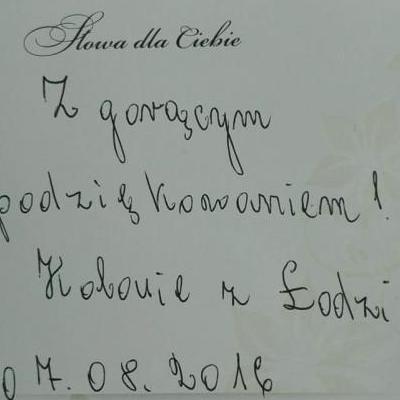 Słowa dla Ciebie
Z gorącym
podziękowaniem!
Kolonie z Łodzi
07.08.2016